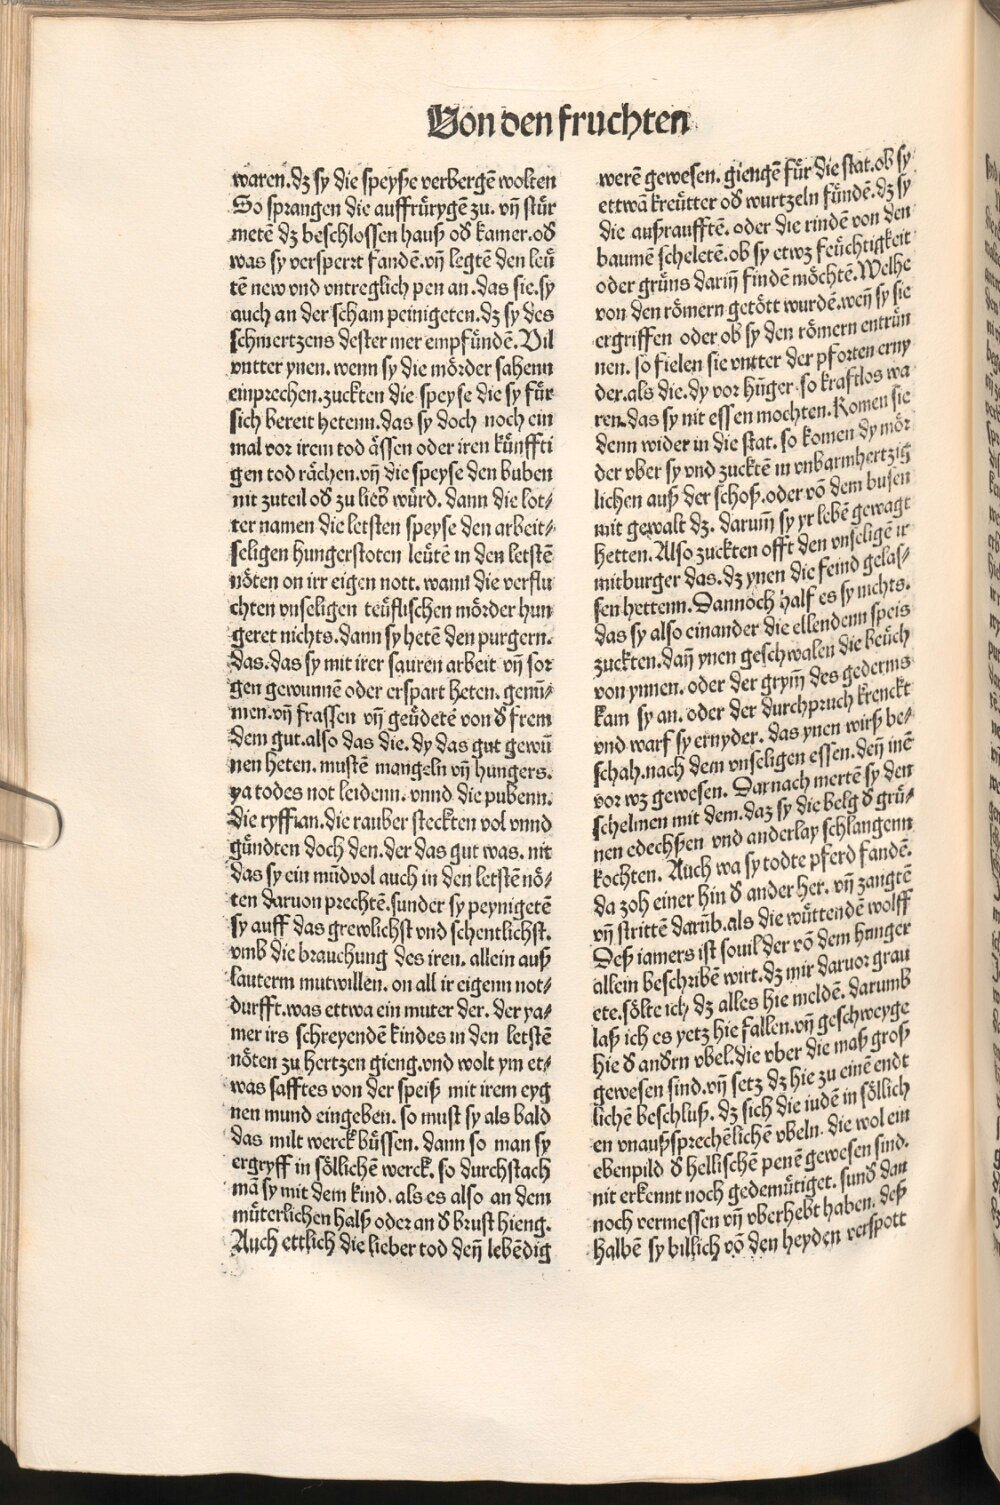 Von den fruchten
waren.dz sy die speyße verbergē wolten
So sprangen die auffrürygē zu. vñ stür
metē dz beschlossen hauß od̛ kamer.od̛
was sy versperrt fandē.vñ legtē den leü
tē new vnd vntreglich pen an.das sie.sy
auch an der scham peinigeten.dz sy des
schmertzens dester mer empfündē.Vil
vntter ynen. wenn sy die mörder sahenn
einprechen.zuckten die speyse die sy für
sich bereit hetenn.das sy doch noch ein
mal vor irem tod ässen oder iren künffti
gen tod rächen.vñ die speyse den buben
nit zuteil od̛ zu lieb würd. dann die lot⸗
ter namen die letsten speyse den arbeit⸗
seligen hungerstoten leütē in den letstē
nöten on irr eigen nott. wann die verflu
chten vnseligen teüflischen mörder hun
geret nichts.dann sy hetē den purgern.
das.das sy mit irer sauren arbeit vñ sor
gen gewunnē oder erspart heten. genū⸗
men.vñ frassen vñ geüdetē von d̛ frem
dem gut.also das die. dy das gut gewū
nen heten. mustē mangeln vñ hungers.
ya todes not leidenn. vnnd die pubenn.
die ryffian.die rauber steckten vol vnnd
gündten doch den.der das gut was. nit
das sy ein mūdvol auch in den letstē nö⸗
ten daruon prechtē.sunder sy peynigetē
sy auff das grewlichst vnd schentlichst.
vmb die brauchung des iren. allein auß
lauterm mutwillen. on all ir eigenn not⸗
durfft.was ettwa ein muter der. der ya⸗
mer irs schreyendē kindes in den letstē
nöten zu hertzen gieng.vnd wolt ym et⸗
was safftes von der speiß mit irem eyg
nen mund eingeben. so must sy als bald
das milt werck büssen. dann so man sy
ergryff in söllichē werck. so durchstach
mā sy mit dem kind. als es also an dem
müterlichen halß oder an d̛ brust hieng.
Auch ettlich die lieber tod deñ lebēdig
werē gewesen. giengē für die stat.ob sy
ettwā kreütter od̛ wurtzeln fündē.dz sy
die außraufftē. oder die rindē von den
baumē scheletē.ob sy etwz feüchtigkeit
oder grüns dariñ findē möchtē.Welhe
von den römern getött wurdē.weñ sy sie
ergriffen oder ob sy den römern entrün
nen. so fielen sie vntter der pforten erny
der.als die.dy vor hūger so kraftlos wa
ren.das sy nit essen mochten.Komen sie
denn wider in die stat. so komen dy mör
der vber sy vnd zucktē in vnbarmhertzig
lichen auß der schoß.oder vō dem busen
mit gewalt dz. daruɱ sy yr lebē gewagt
hetten.Also zuckten offt den vnseligē ir
mitburger das.dz ynen die feind gelas⸗
sen hettenn.Dannoch half es sy nichts.
das sy also einander die ellendenn speis
zuckten.dañ ynen geschwalen die beüch
von ynnen. oder der gryɱ des gederms
kam sy an. oder der durchpruch krenckt
vnd warf sy ernyder. das ynen wirß be⸗
schah.nach dem vnseligen essen.deñ inē
vor wz gewesen. Darnach mertē sy den
schelmen mit dem.daz sy die belg d̛ grü⸗
nen edechßen vnd anderlay schlangenn
kochten. Auch wa sy todte pferd fandē.
da zoh einer hin d̛ ander her. vñ zangtē
vñ strittē darüb.als die wüttendē wolff
Deß iamers ist souil der vō dem hunger
allein beschribē wirt.dz mir daruor grau
ete.sölte ich dz alles hie meldē. darumb
laß ich es yetz hie fallen.vñ geschweyge
hie d̛ and̛rn vbel.die vber die maß groß
gewesen sind.vñ setz dz hie zu einē endt
lichē beschluß. dz sich die iudē in söllich
en vnaußsprechēlichē vbeln. die wol ein
ebenpild d̛ hellischē penē gewesen sind.
nit erkennt noch gedemütiget. sund̛ dan
noch vermessen vñ vberhebt haben. deß
halbē sy billich vō den heyden verspott